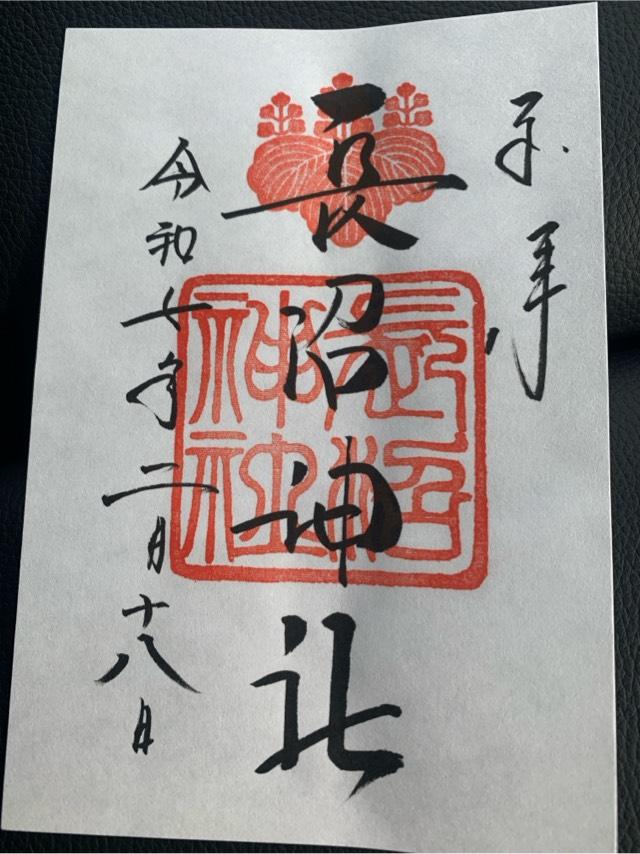 奉拝
長沼神社
長沼神社
令和七年二月十八日